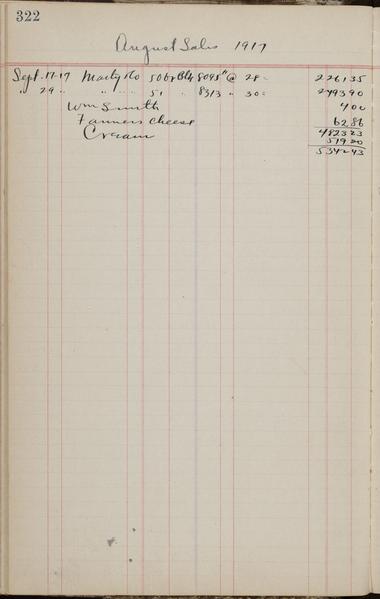 322
August Sales 1917
Sept. 17-17 Marty & Co 50 br Blk 8095 # @ 28 = 2261 35
" 29 " " " " 51 " 8313 " 30 = 2493 90
Wm Smith 4 00
Farmers cheese 62 86
4823 23
Cream 519 20
5342 43